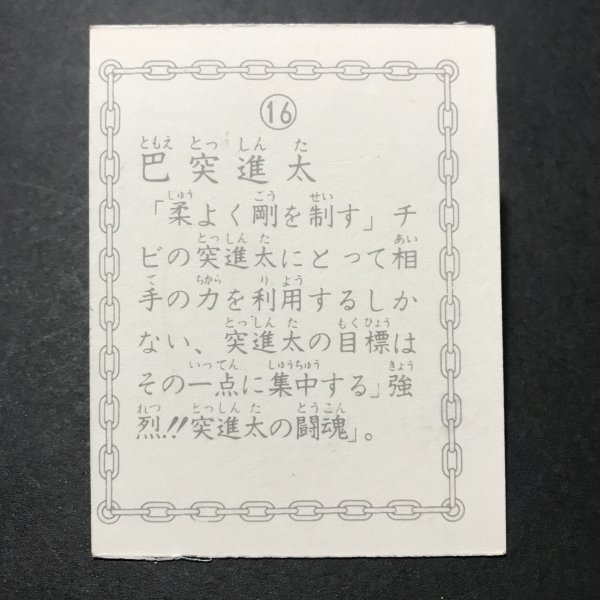 ⑯
ともえ とっ しん た
巴突進太
しゅう ごう せい
「柔よく剛を制す」チ
とっしん た あい
ビの突進太にとって相
て ちから り よう
手の力を利用するしか
とっしん た もくひょう
ない、突進太の目標は
いってん しゅうちゅう きょう
その一点に集中する」強
れつ とっしん た とうこん
烈!!突進太の闘魂」。